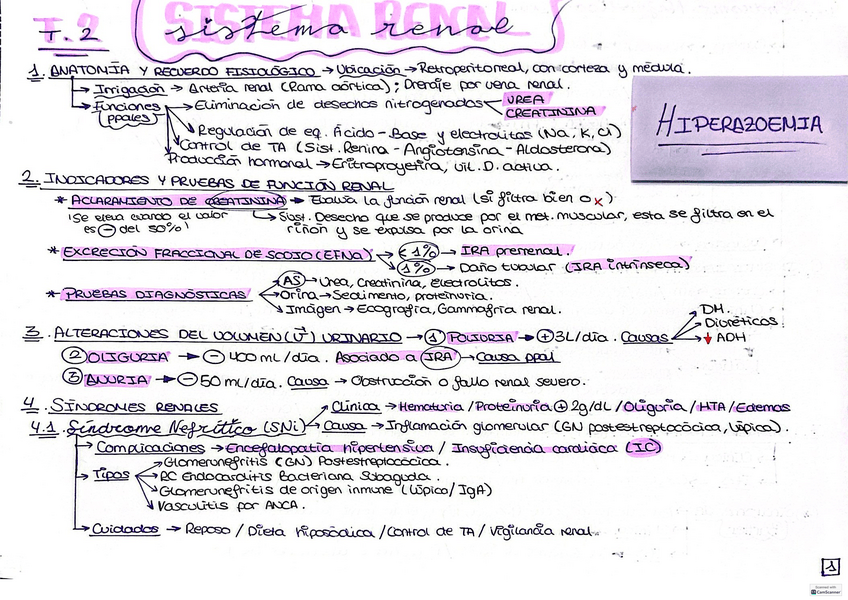 SISTEMA RENAL
T.2 sistema renal
1. ANATOMÍA Y RECUERDO FISIOLÓGICO → Ubicación → Retroperitoneal, con corteza y médula.
→ Irrigación → Arteria renal (Rama aórtica); Drenaje por vena renal.
→ Funciones (ppales) → Eliminación de desechos nitrogenados UREA
CREATININA
HIPERAZOEMIA
Regulación de eq. Ácido-Base y electrolitos (Na, K, Cl)
Control de TA (Sist. Renina-Angiotensina-Aldosterona)
Producción hormonal → Eritroproyetina, vit. D. activa.
2. INDICADORES Y PRUEBAS DE FUNCIÓN RENAL
* ACLARAMIENTO DE CREATININA → Evalúa la función renal (si filtra bien o x)
!Se eleva cuando el valor es ⊖ del 50%! → Sust. Desecho que se produce por el met. muscular, esta se filtra en el
riñón y se expulsa por la orina
* EXCRECIÓN FRACCIONAL DE SODIO (EFNa) → <1% → IRA prerrenal.
1% → Daño tubular (IRA intrínseca)
AS → Urea, Creatinina, Electrolitos.
* PRUEBAS DIAGNÓSTICAS Orina → Sedimento, proteinuria.
Imagen → Ecografía, Gammafría renal.
3. ALTERACIONES DEL VOLUMEN (V) URINARIO → ① POLIURIA → ⊕ 3L/día. Causas DM.
Diuréticos.
↓ ADH
② OLIGURIA → ⊖ 400 mL/día. Asociado a IRA → Causa ppal
③ ANURIA → ⊖ 50 ml/día. Causa → Obstrucción o fallo renal severo.
4. SÍNDROMES RENALES
Clínica → Hematuria / Proteinuria ⊕ 2g/dL / Oliguria / HTA / Edemas
4.1. Síndrome Nefrítico (SNi) → Causa → Inflamación glomerular (GN postestreptocócica, lúpica).
→ Complicaciones → Encefalopatía hipertensiva / Insuficiencia cardiáca (IC)
Glomerunefritis (GN) Postestreptocócica.
→ Tipos PC Endocarditis Bacteriana Subaguda.
Glomerunefritis de origen inmune (Lúpico/IgA)
Vasculitis por ANCA.
→ Cuidados → Reposo / Dieta hiposódica / Control de TA / Vigilancia renal.
1
Scanned with
CamScanner